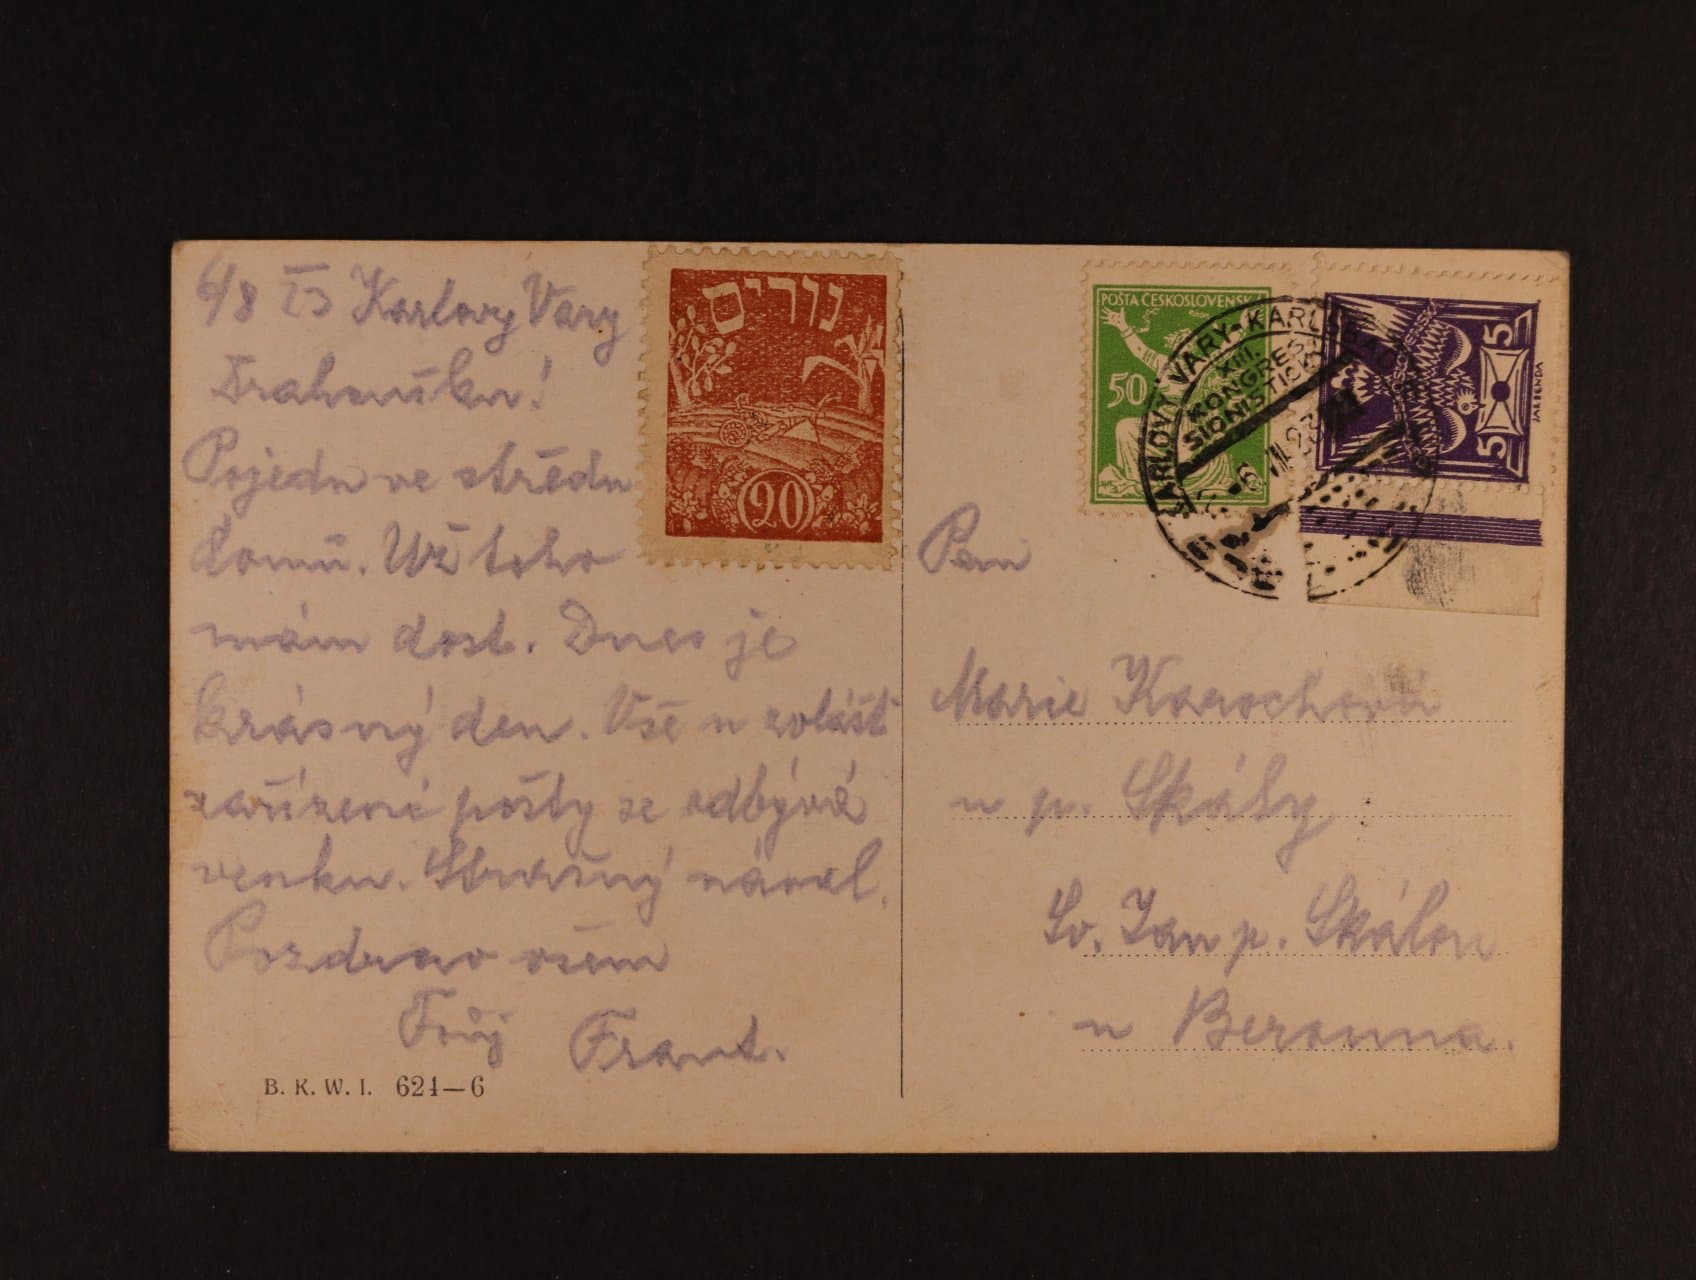 6/8 23 Karlovy Vary
Drahoušku!
Pojedu ve středu
domů. Už toho
mám dost. Dnes je
krásný den. Vše u zvlášť
zařízené pošty se odbývá
venku. Strašný nával.
Pozdrav všem
Tvůj Frant.
B. K. W. I. 621—6
נורים
20
POŠTA ČESKOSLOVENSKÁ
50
5 5
KARLOVY VARY-KARLSBAD
XIII.
KONGRES
SIONISTICK
6 VIII 23
Paní
Marie Karochová
u p. Skály
Sv. Jan p. Skálou
u Berouna.